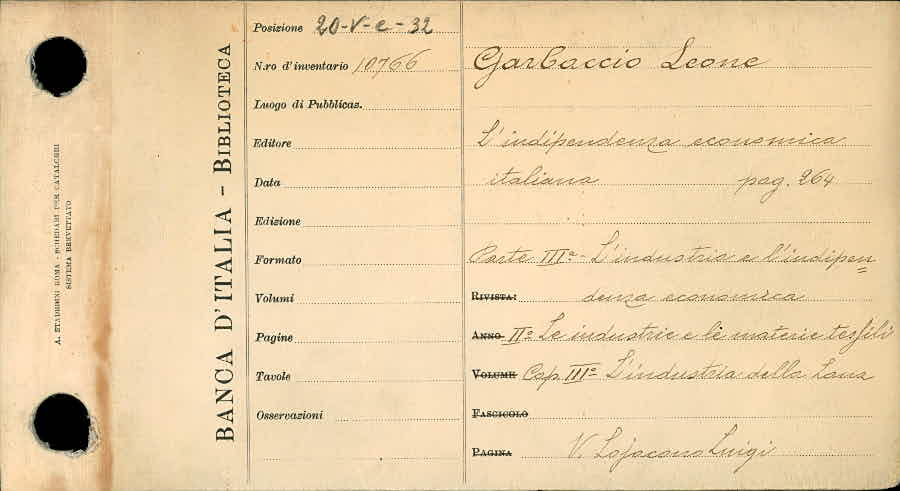 A. STADERINI ROMA - SCHEDARI PER CATALOGHI
SISTEMA BREVETTATO
BANCA D'ITALIA – BIBLIOTECA
Posizione 20-V-e-32
N.ro d'inventario 10766
Luogo di Pubblicaz.
Editore
Data
Edizione
Formato
Volumi
Pagine
Tavole
Osservazioni
Garbaccio Leone
L'indipendenza economica
italiana pag. 264
Parte IIIª - L'industria e l'indipen=
RIVISTA: denza economica
ANNO IIº Le industrie e le materie tessili
VOLUME Cap. IIIº L'industria della Lana
FASCICOLO
PAGINA V. Lojacono Luigi